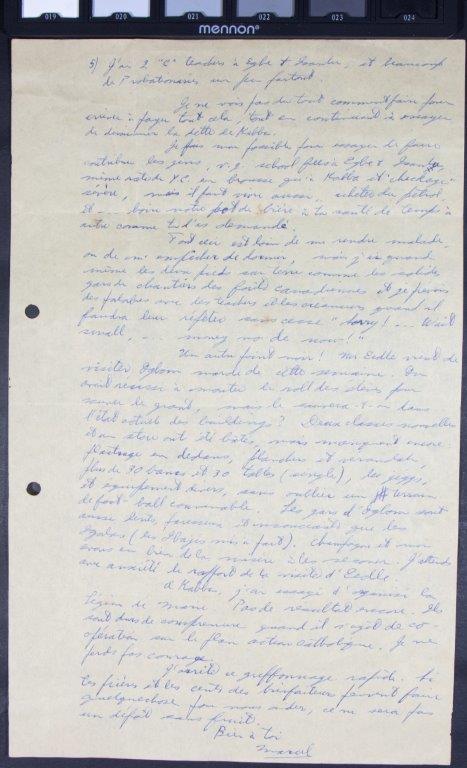 019 020 021 022 023 024
mennon®
5) J'ai 2 "C" teachers à Egbe & Isanlu, et beaucoup
de Probationaries un peu partout.
Je ne vois pas du tout comment faire pour
arriver à payer tout cela, tout en continuant à essayer
de diminuer la dette de Kabba.
Je fais mon possible pour essayer de faire
contribuer les gens, v.g. school fees à Egbe & Isanlu,
même note de X.C. en brousse qu'à Kabba et "checkage"
sévère, mais il faut vivre aussi, acheter du petrol,
et ... boire notre pot de bière à ta santé de temps à
autre comme tu l'as demandé.
Tout ceci est loin de me rendre malade,
ou de m'empêcher de dormir, mais j'ai quand
même les deux pieds sur terre comme les solides
gars de chantiers des forêts canadiennes et je prévois
des palabres avec les teachers et les creanciers quand il
faudra leur répéter sans cesse "Sorry! ... Wait
small, ... money no de now!"
Un autre point noir! Mr Eedle vient de
visiter Oglom mardi de cette semaine. On
avait réussi à monter le roll des élèves pour
sauver le grant, mais le sauvera-t-on dans
l'état actuel des buildings? Deux classes nouvelles
et un store ont été bâtis, mais manquent encore:
plastrage en dedans, planchers et verandah,
plus de 30 bancs et 30 tables (single),
et equipement divers, sans oublier un terrain
de foot-ball convenable. Les gars d' sont
aussi lents, paresseux et insouciants que les
Igalas (les Ibajis mis à part). Champagne et moi
avons eu bien de la misère à les secouer. J'attends
avec anxiété le rapport de la visite d'Eedle.
A Kabba, j'ai essayé d'organiser la
Légion de Marie. Pas de résultat encore. Ils
sont durs de comprenure quand il s'agit de co-
opération sur le plan action catholique. Je ne
perds pas courage.
J'arrête ce griffonnage rapide. Si
tes prières et les cents des bienfaiteurs peuvent faire
quelque chose pour nous aider, ce ne sera pas
un dépôt sans fruit.
Bien à toi
Marcel